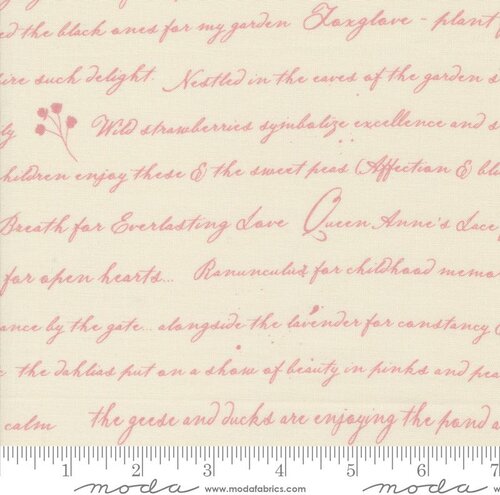 ed the black ones for my garden Foxglove - plant f
ire such delight. Nestled in the eaves of the garden s
ly Wild strawberries symbolize excellence and s
children enjoy these & the sweet peas (Affection & blu
Breath for Everlasting Love Queen Anne's Lace
for open hearts... Ranunculus for childhood memo
ance by the gate... alongside the lavender for constancy &
the dahlias put on a show of beauty in pinks and pea
calm the geese and ducks are enjoying the pond a
1 2 3 4 5 6 7
moda www.modafabrics.com moda